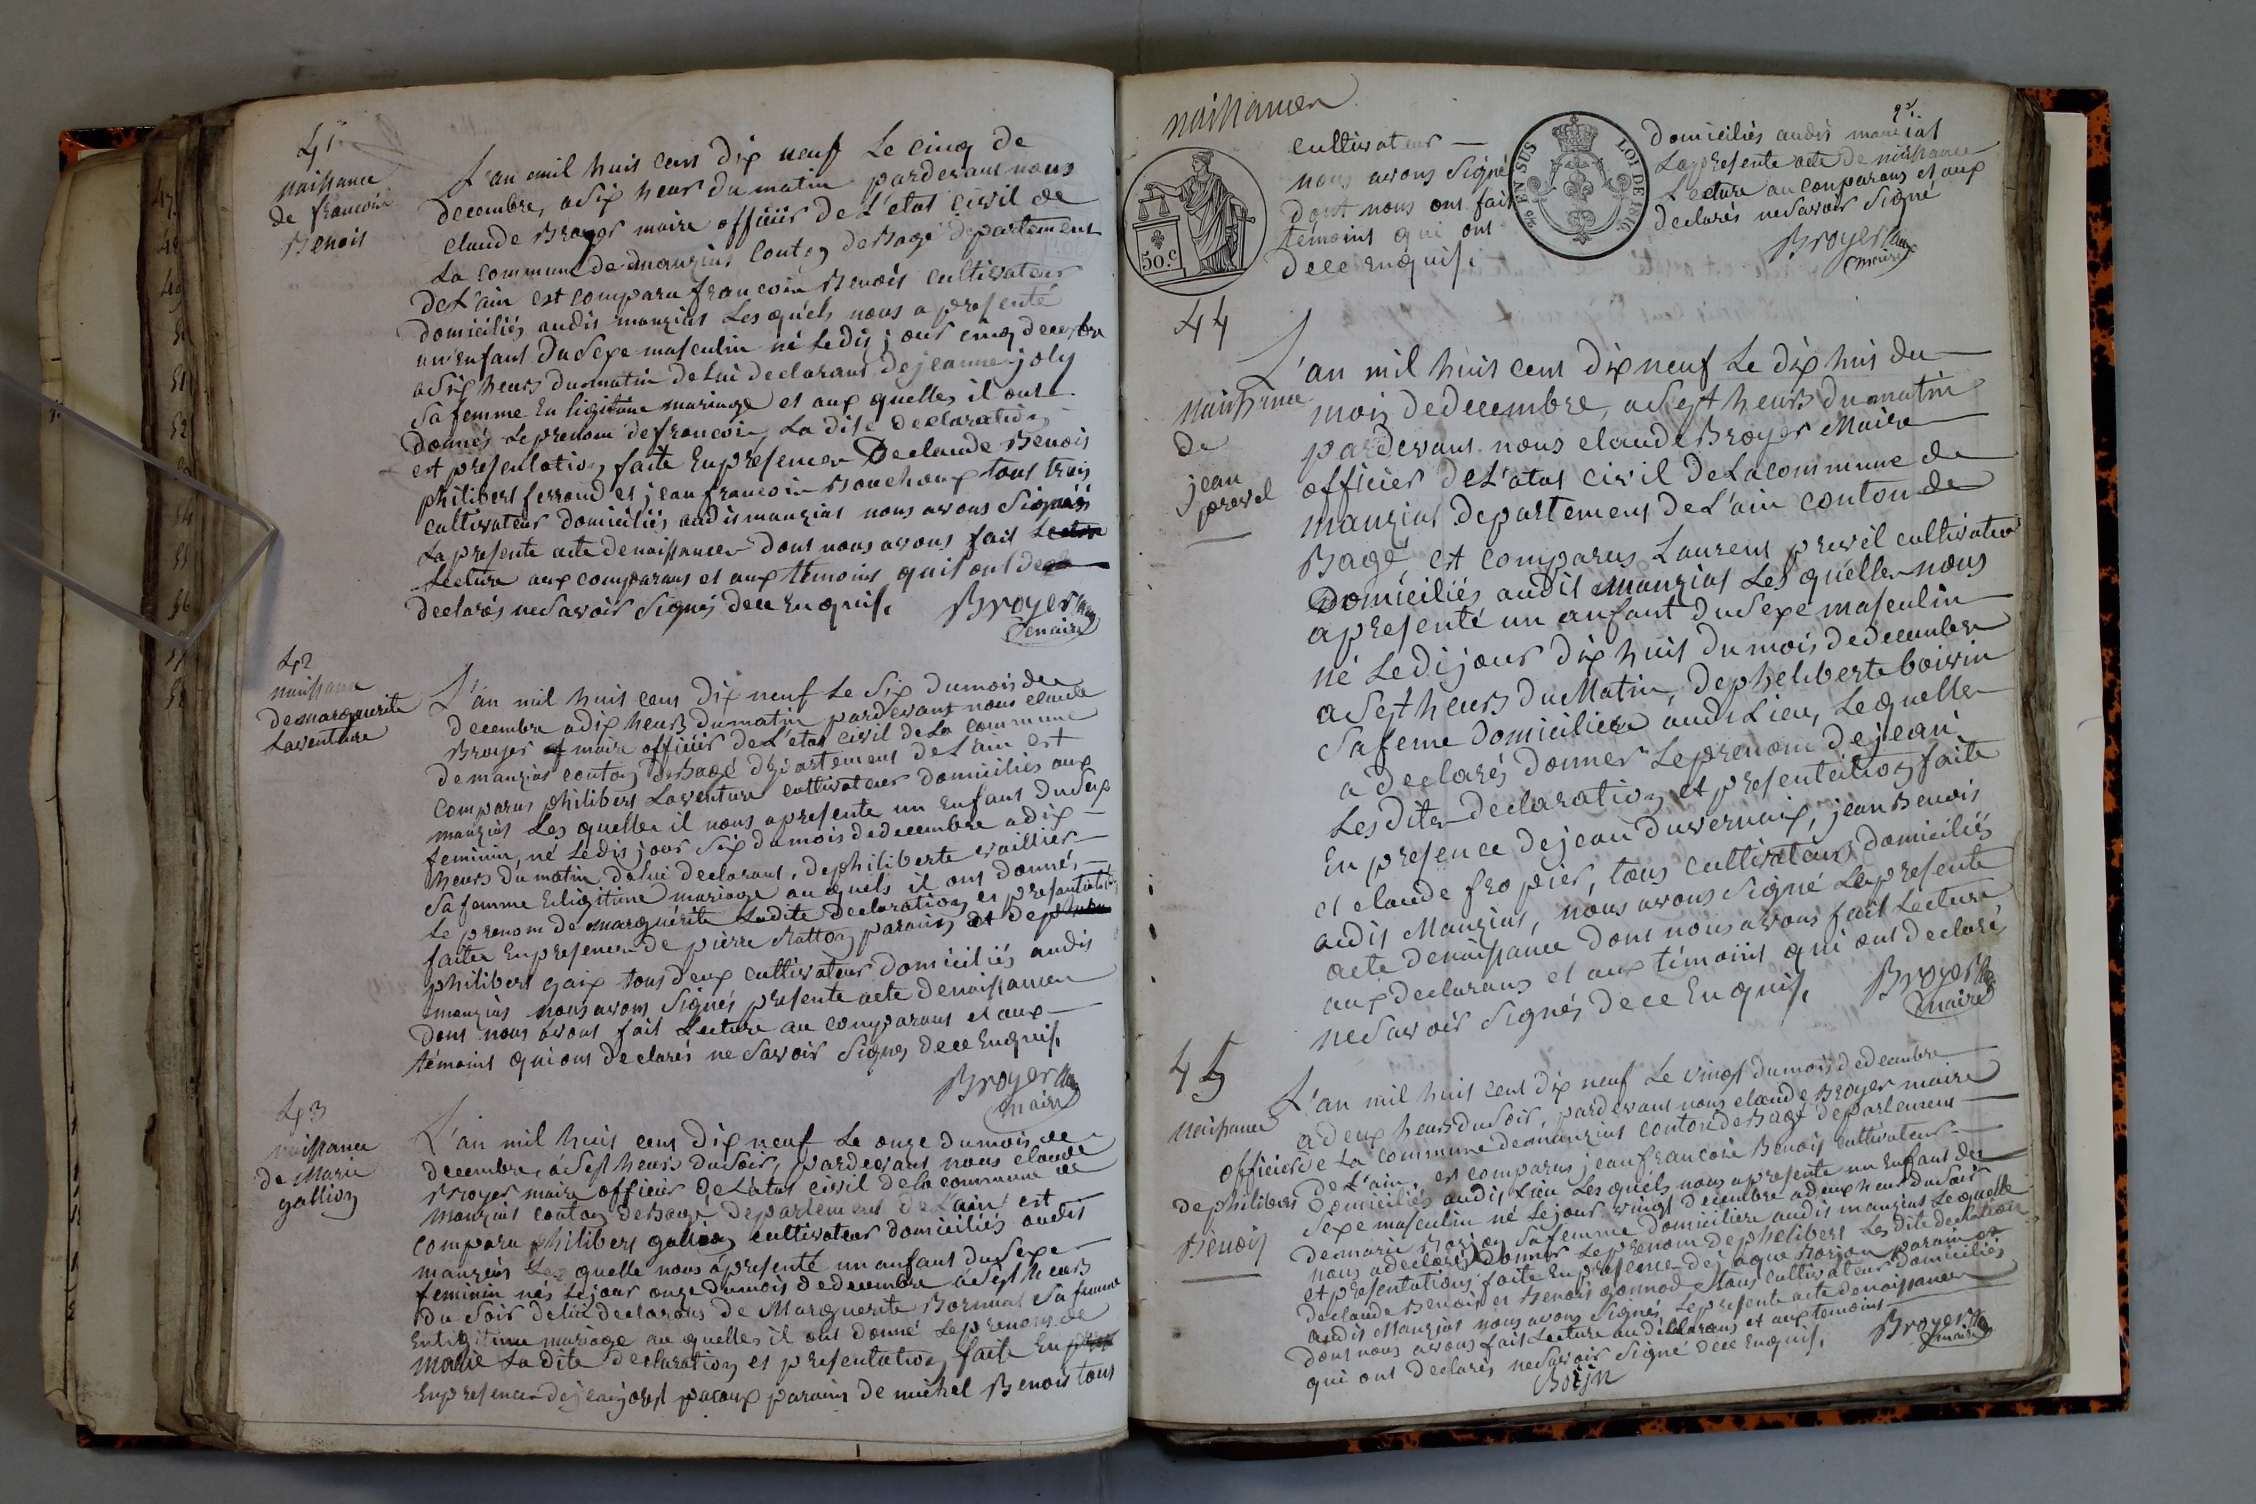 41
naissance
de francois
Benois
L'an mil huis cens dix neuf Le cinq de
decembre, a six heur du matin pardevant nous
claude Broyer maire officiir de L'etat civil de
La commune de manzias Conton de Bagé departement
de L'ain est comparu francois Benois cultivateur
domiciliés audis manzias Lesquels nous a presenté
un enfans du sexe masculin né Ledis jour cinq decembre
a six heurs du matin de Lui declarans de jeanne joly
sa femme En ligitime mariage et aux quelles il ont
donnés Le prenom de francois La dite declaration
et presentation faite En presence De claude Benois
philibers ferrand et jean francois Bouchoux tous trois
cultivateur domiciliés audis manzias nous avons Signés
La presente acte de naissance dons nous avons fais
Lecture aux comparans et aux témoins quis ont
declarés ne Savoir Signés de ce Enquis.
Broyer
maire
42
naissance
de marguerite
Laventure
L'an mil huis cens dix neuf Le Six du mois de
decembre a dix heurs du matin pardevant nous claude
Broyer maire officiir de L'etat civil de La commune
de manzias conton de Bagé departement de L'ain est
comparus philibers Laventure cultivateur domiciliés aux
manzias Les quelle il nous a presente un Enfans du Sexe
feminin, né Ledis jour Six du mois de decembre a dix
heurs du matin de lui declarans, de philiberte vaillier
Sa femme En ligitime mariage au quels il ont donné,
Le prenom de marguérite La dite declaration es presentation
faite En presence de pierre Ratton parain et de
philibers gaix tous deux cultivateur domiciliés audis
manzias nous avons Signés presente acte de naissance
dons nous avons fais Lecture au comparans et aux
témoins qui ons declarés ne Savoir Signes de ce Enquis.
Broyer
maire
43
naissance
de Marie
gallion
L'an mil huis cens dix neuf Le onze du mois de
decembre, á Sept heurs du Soir, pardevans nous claude
Broyer maire officier de L'etat civil de la commune de
manzias conton de Bage departement de L'ain est
comparu philibers gallion cultivateur domiciliés audis
manzias Les quelle nous á presenté un anfans du Sexe
feminin nés Le jour onze du mois de decembre á Sept heurs
du Soir de lui declarans de Marguerite Bornuat Sa femme
En ligitime mariage au quelles il ons donné Le prenom de
marie La dite declaration es presentation faite
En presence de parain de michel Benois tous
naissances
cultivateur
nous avons Signé
dont nous ons fais
temoins qui ons
de ce enquis.
50.c
% EN SUS
LOI DE 1816
domiciliés audis manzias
La presente acte de naissance
Lecture au comparans et aux
declarés ne Savoir Signé
Broyer
maire
44
naissance
de
jean
prevel
L'an mil huis cens dix neuf Le dix huis du
mois de decembre, a Sept heurs du matin
pardevans nous claude Broyer Maire
officier de L'atas civil de La commune de
manzias departement de L'ain conton de
Bagé est comparus Laurens prevel cultivateur
Domiciliés audis manzias Les quelle nous
a presenté un anfant du Sexe masculin
né Ledi jour dix huis du mois de decembre
a Sept heurs du Matin, de pheliberte boivin
Sa feme domiciliée audi Lieu, Le quelle
a declarés donner Le prenom de jean,
Les dite declaration et presentation faite
En presence de jean duvernaix, jean Benois
et claude fropier, tous cultivateurs domiciliés
audis Manzias, nous avons Signé La presente
acte de naissance dons nous avons fais Lecture
aux declarans et aux témoins qui ons declaré
ne Savoir Signés de ce Enquis,
Broyer
maire
45
naissance
de philibers
Benois
L'an mil huis cens dix neuf Le vingt du mois de decembre
a deux heurs du Soir, pardevans nous claude Broyer maire
officier de La commune de manzias conton de Bage departement
de L'ain, est comparus jean francois Benois cultivateur
domiciliés audis Lieu Les quels nous a presente un Enfans du
Sexe masculin né Le jour vingt decembre a deux heur du Soir
de marie Morjon Sa femme domiciliere audis manzias Le quelle
nous a declarés donner Le prenom de phelibers Les dite declaration
et presentations faite En presence de jaque Morjon parain et
de claude Benois et Benois gonnod, tous cultivateur domiciliés
audis Manzias nous avons Signés Le presente acte de naissance
dons nous avons fais Lecture au declarans et aux temoins
qui ons declarés ne Savoir Signé de ce Enquis.
Broyer
maire